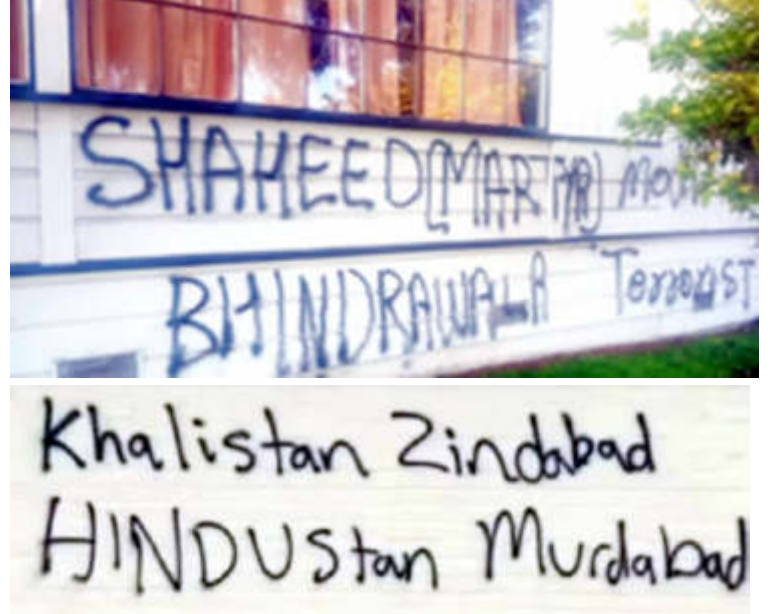 SHAHEED (MARTYR)
BHINDRAWALA Terrorist
Khalistan Zindabad
HINDUStan Murdabad